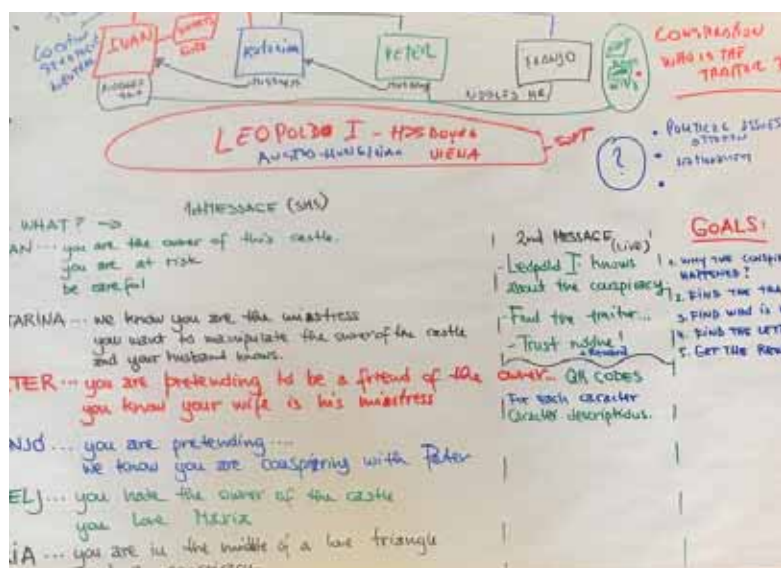 IVAN
Katarina
PETER
FRANJO
mistress
CONSPIRATION
WHO IS THE
TRAITOR ?
LEOPOLD I - HDS Doyen
VIENA
?
• POLITICAL ISSUES
WHAT? →
1st MESSAGE (SMS)
AN... you are the owner of this castle.
you are at risk
be careful
TARINA... we know you are the mistress
you want to manipulate the owner of the castle
and your husband knows.
TER... you are pretending to be a friend of the owner...
you know your wife is his mistress
NJO... you are pretending....
we know you are conspiering with Peter
ELJ... you hate the owner of the castle
you love Maria
IA... you are in the middle of a love triangle
2nd MESSAGE (LIVE)
- Leopold I knows
about the conspiracy
- Find the traitor...
- Trust nobone!
+ Reward
QR CODES
For each caracter
Caracter descriptions.
GOALS:
1. WHY THE CONSPI
HAPPENED?
2. FIND THE TRA
3. FIND WHO IS
4. FIND THE LET
5. GET THE REW